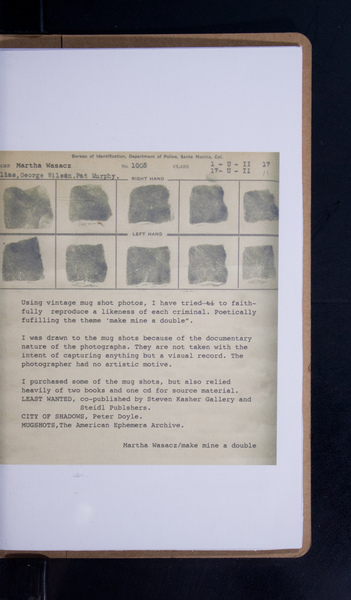 Bureau of Identification, Department of Police, Santa Monica, Cal.
Martha Wasacz No. 1008 CLASS 1 - U - II 17
George Wilson,Pat Murphy. 17- U - II
RIGHT HAND
LEFT HAND
Using vintage mug shot photos, I have tried ti to faith-
fully reproduce a likeness of each criminal. Poetically
fufilling the theme 'make mine a double".
I was drawn to the mug shots because of the documentary
nature of the photographs. They are not taken with the
intent of capturing anything but a visual record. The
photographer had no artistic motive.
I purchased some of the mug shots, but also relied
heavily of two books and one cd for source material.
LEAST WANTED, co-published by Steven Kasher Gallery and
Steidl Publshers.
CITY OF SHADOWS, Peter Doyle.
MUGSHOTS,The American Ephemera Archive.
Martha Wasacz/make mine a double